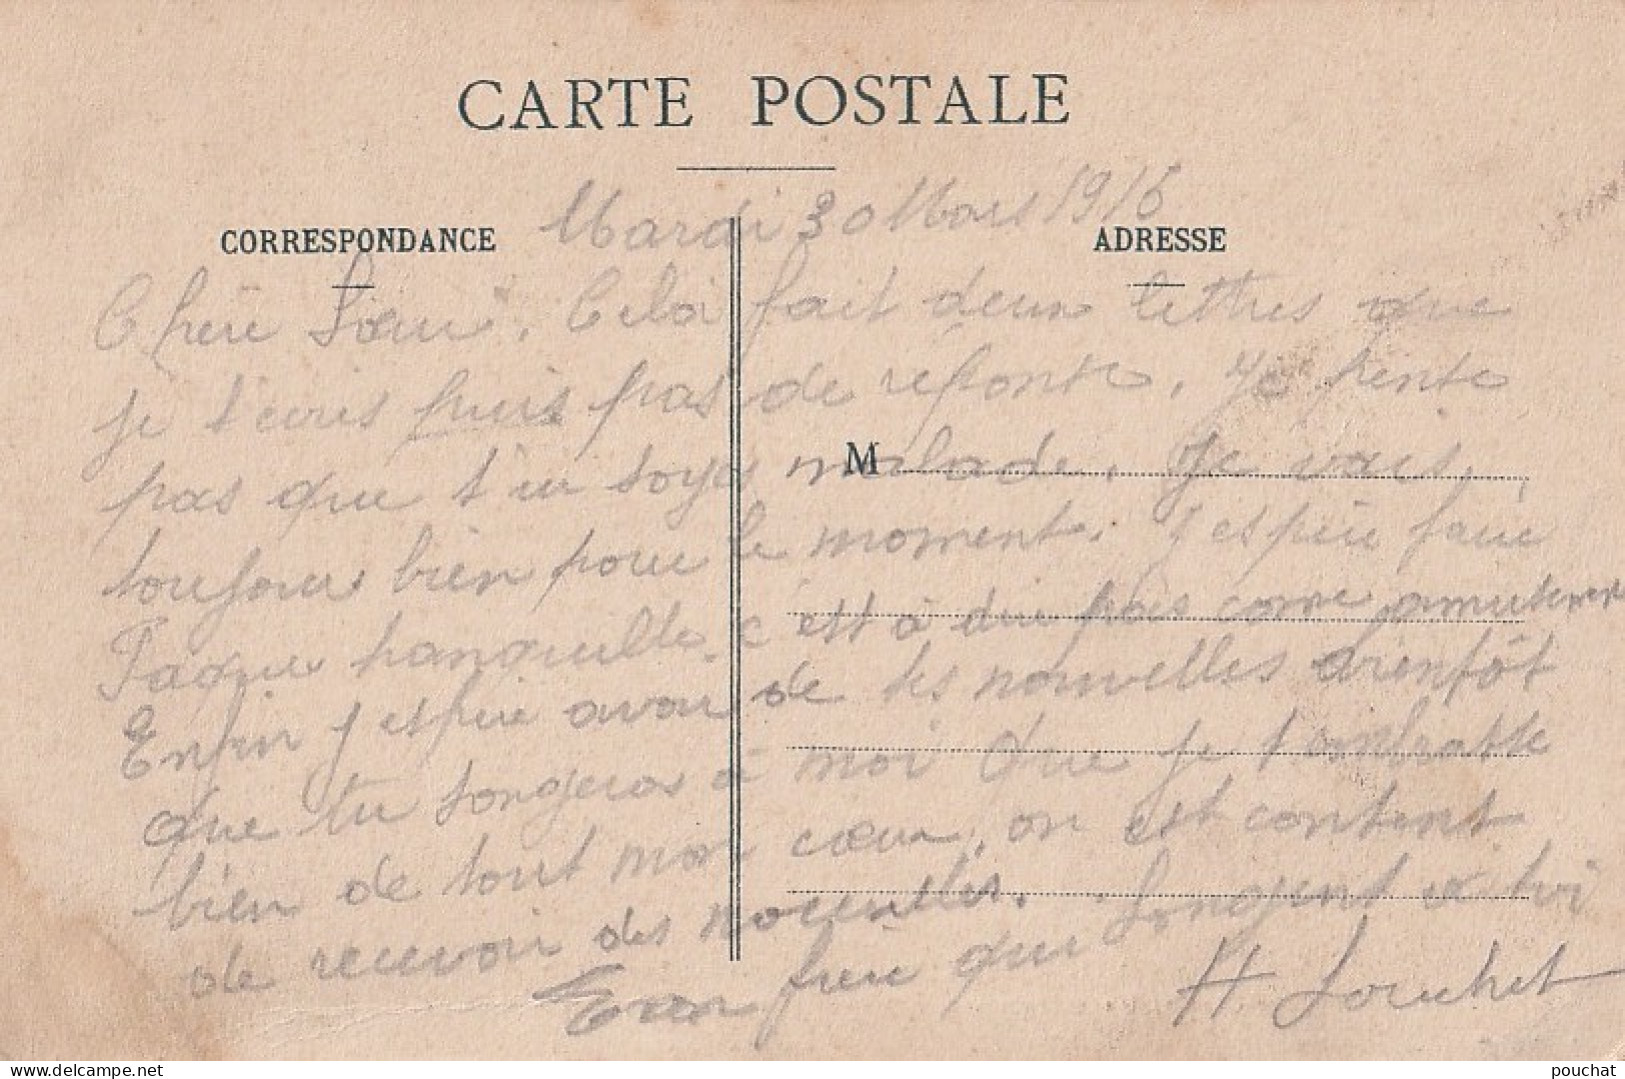 CARTE POSTALE
Mardi 30 Mars 1915
CORRESPONDANCE
ADRESSE
Chère Sœur. Cela fait deux lettres que
je t'ecris puis pas de reponse. Je pense
pas que t'en soyes malade. Je vais
M
toujours bien pour le moment. J'espère faire
Paques tranquille. c'est à dire pas comme amusement
Enfin j'espère avoir de tes nouvelles bientôt
que tu songeras à moi Que je t'embrasse
bien de tout mon cœur, on est content
de recevoir des nouvelles.
Ton frère qui songent a toi
H. Louchet
pouchat